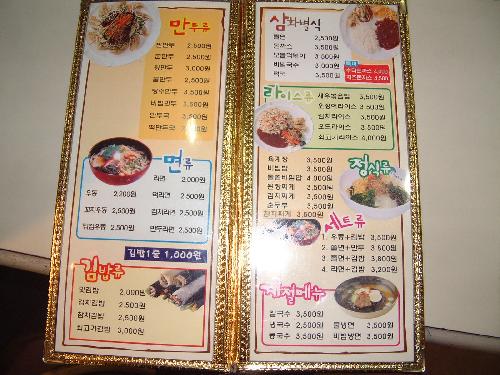 만두류
찐만두 2,500원
군만두 2,500원
왕만두 3,000원
물만두 2,500원
탕수만두 4,500원
비빔만두 3,500원
만두국 3,500원
떡만두국 3,500원
면류
라면 2,000원
우동 2,200원
떡라면 2,500원
김치우동 2,500원
김치라면 2,500원
2,500원
만두라면 2,500원
김밥1줄 1,000원
김밥류
2,000원
김치김밥 2,500원
참치김밥 2,500원
쇠고기김밥 3,000원
삼화별식
쫄면 2,500원
돈까스 3,500원
모듬떡볶이 3,000원
비빔국수 3,000원
떡국 3,500원
4,000
치즈돈까스 4,500
라이스류
새우볶음밥 3,500원
오징어라이스 3,500원
김치라이스 3,500원
오므라이스 3,500원
쇠고기라이스 4,000원
정식류
육개장 3,500원
비빔밥 3,500원
돌솥비빔밥 4,000원
된장찌개 3,500원
김치찌개 3,500원
순두부 3,500원
참치찌개 3,500원
세트류
1. 우동+김밥 3,500원
2. 쫄면+만두 3,800원
3. 쫄면+김밥 3,800원
4. 라면+김밥 3,200원
계절메뉴
칼국수 3,500원
냉국수 2,500원
물냉면 3,500원
콩국수 3,500원
비빔냉면 3,500원